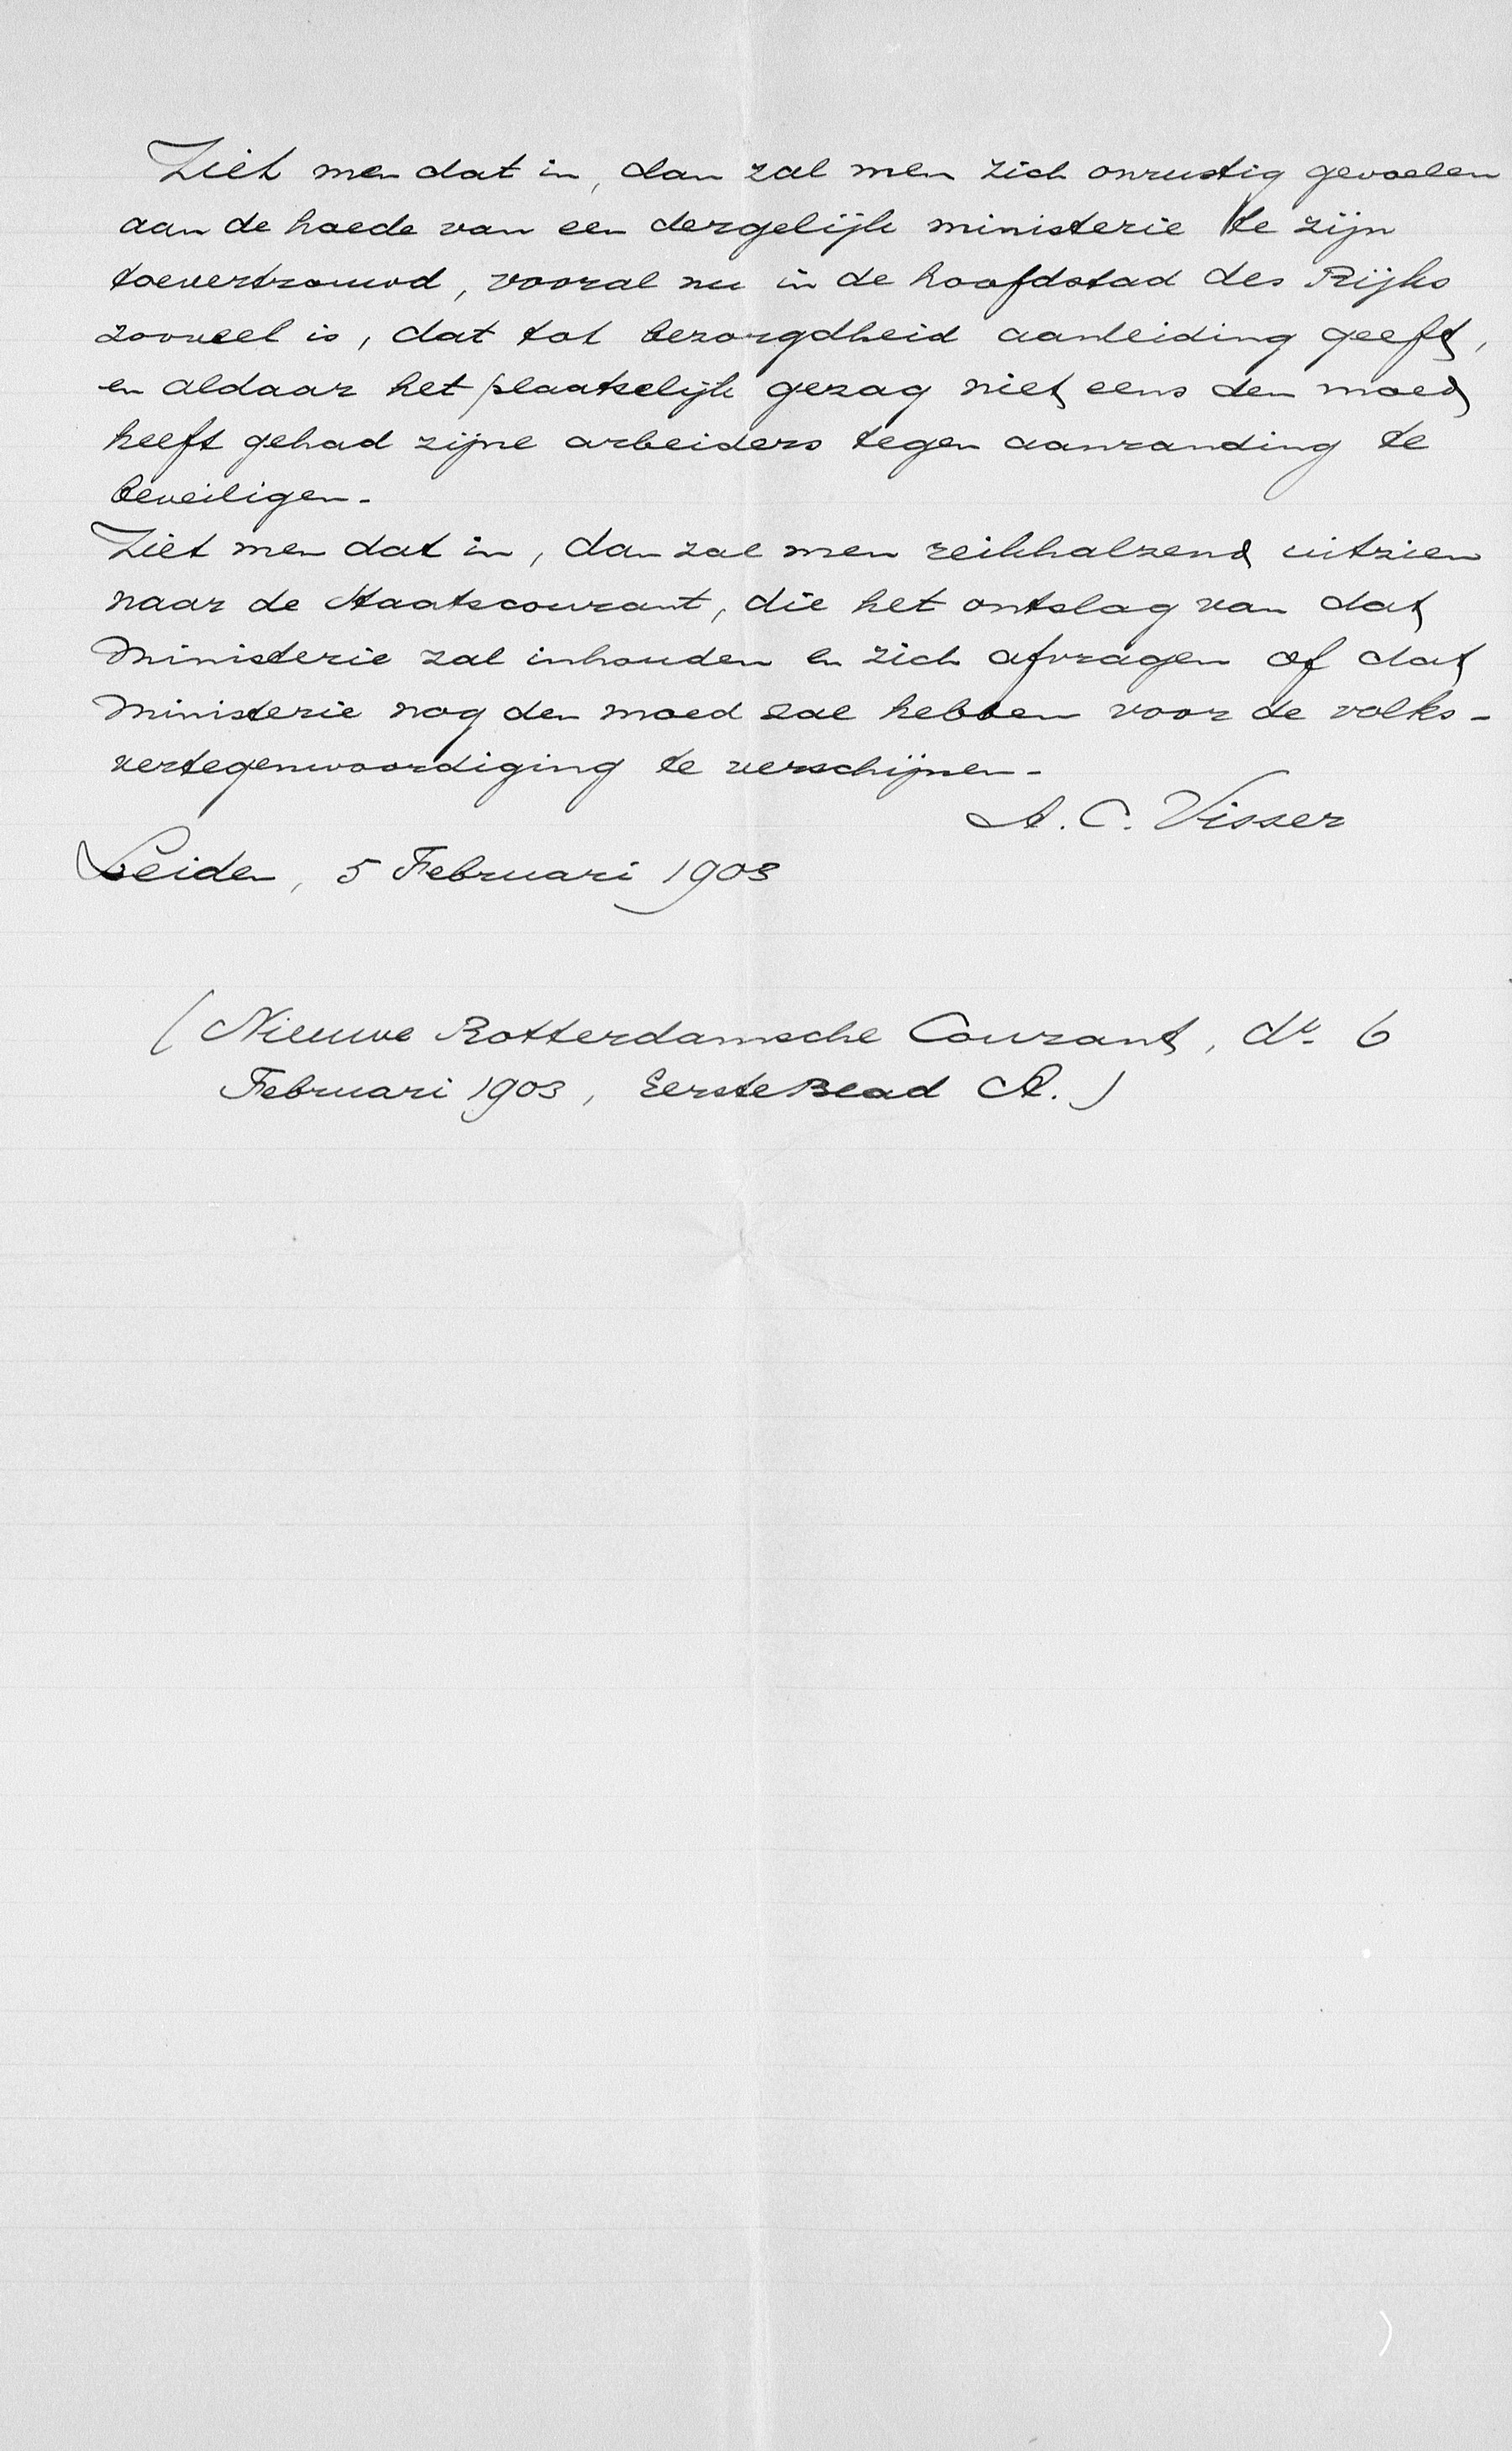 Ziet men dat in, dan zal men zich onrustig gevoelen
aan de hoede van een dergelijk ministerie te zijn
toevertrouwd, vooral nu in de hoofdstad des Rijks
zooveel is, dat tot bezorgdheid aanleiding geeft,
en aldaar het plaatselijk gezag niet eens den moed
heeft gehad zijne arbeiders tegen aanranding te
beveiligen.
Ziet men dat in, dan zal men reikhalzend uitzien
naar de Staatscourant, die het ontslag van dat
Ministerie zal inhouden en zich afvragen of dat
Ministerie nog den moed zal hebben voor de volks-
vertegenwoordiging te verschijnen.
A. C. Visser
Leiden, 5 Februari 1903
(Nieuwe Rotterdamsche Courant, dd. 6
Februari 1903, Eerste Blad A.)